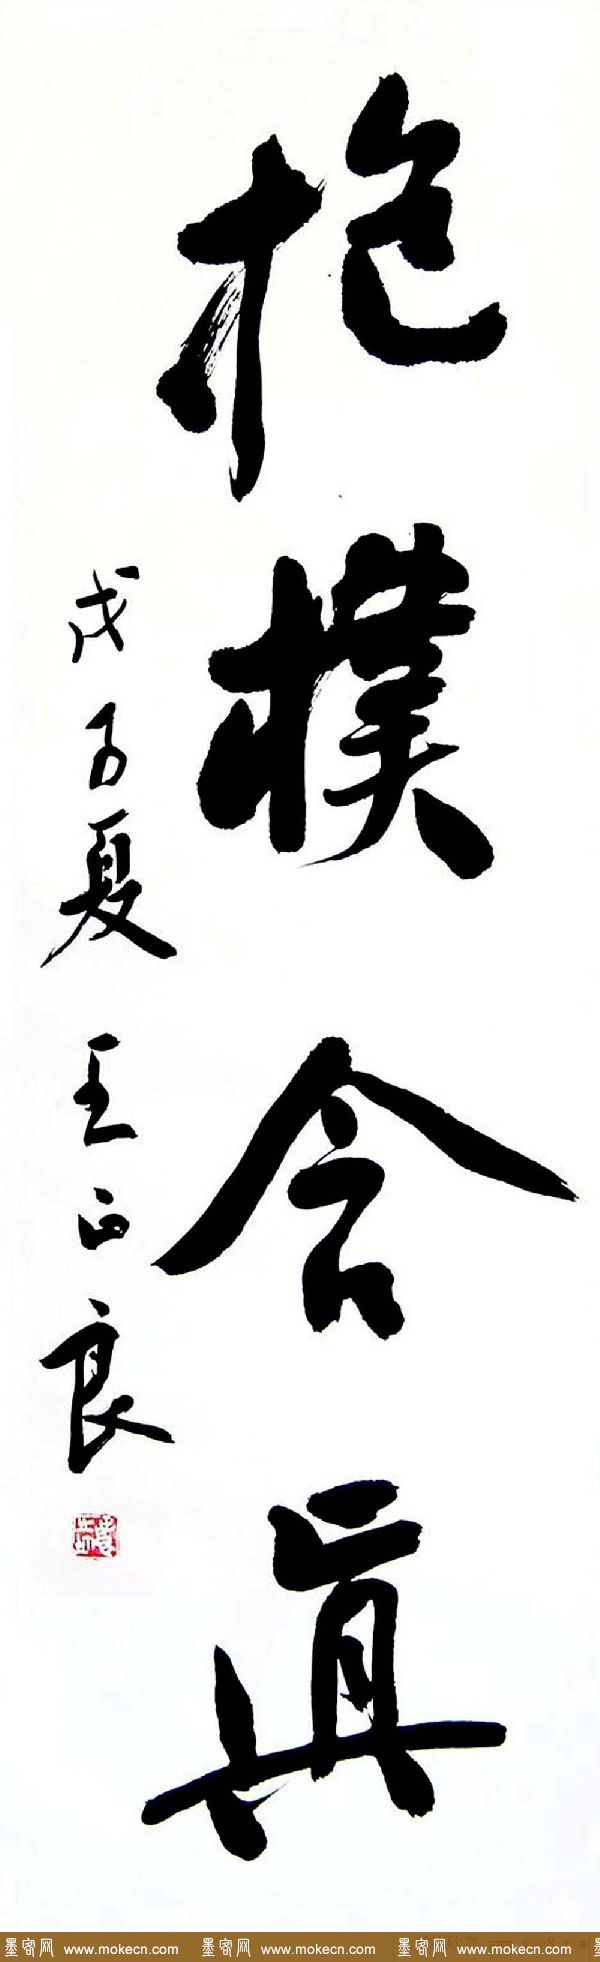 抱樸含真
戊子夏 王正良
墨客网 www.mokecn.com 墨客网 www.mokecn.com 墨客网 www.mokecn.com